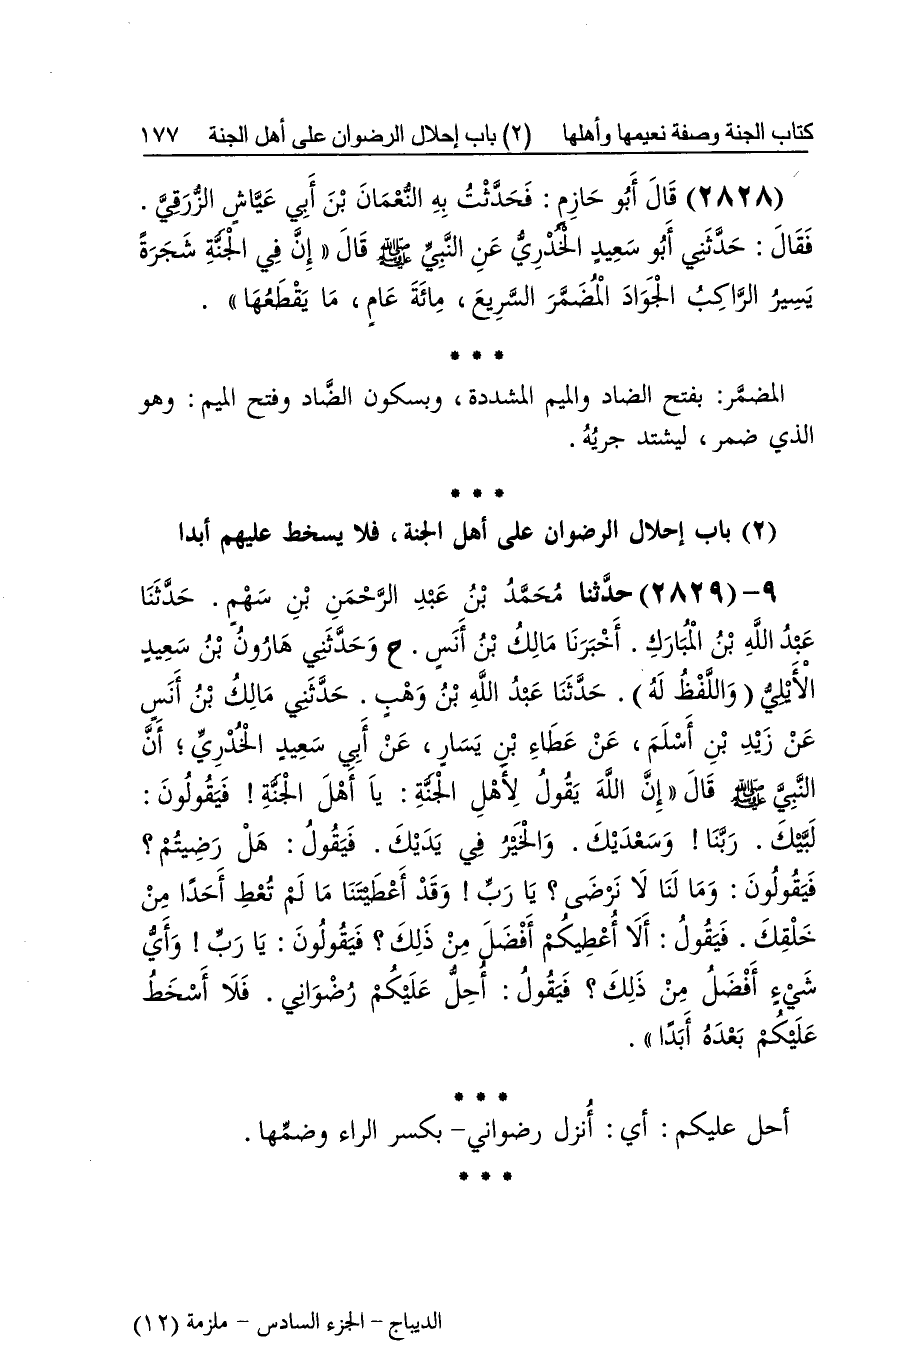 كتاب الجنة وصفة نعيمها وأهلها (٢) باب إحلال الرضوان على أهل الجنة ١٧٧
(٢٨٢٨) قَالَ أَبُو حَازِمٍ : فَحَدَّثْتُ بِهِ النُّعْمَانَ بْنَ أَبِي عَيَّاشٍ الزُّرَقِيَّ .
فَقَالَ : حَدَّثَنِي أَبُو سَعِيدٍ الْخُدْرِيُّ عَنِ النَّبِيِّ ﷺ قَالَ « إِنَّ فِي الْجَنَّةِ شَجَرَةً
يَسِيرُ الرَّاكِبُ الْجَوَادَ الْمُضَمَّرَ السَّرِيعَ ، مِائَةَ عَامٍ ، مَا يَقْطَعُهَا » .
* * *
المضمَّر: بفتح الضاد والميم المشددة ، وبسكون الضَّاد وفتح الميم : وهو
الذي ضمر ، ليشتد جريُهُ .
* * *
(٢) باب إحلال الرضوان على أهل الجنة ، فلا يسخط عليهم أبدا
٩- (٢٨٢٩) حدَّثنا مُحَمَّدُ بْنُ عَبْدِ الرَّحْمَنِ بْنِ سَهْمٍ . حَدَّثَنَا
عَبْدُ اللَّهِ بْنُ الْمُبَارَكِ . أَخْبَرَنَا مَالِكُ بْنُ أَنَسٍ . ح وَحَدَّثَنِي هَارُونُ بْنُ سَعِيدٍ
الْأَيْلِيُّ ( وَاللَّفْظُ لَهُ ) . حَدَّثَنَا عَبْدُ اللَّهِ بْنُ وَهْبٍ . حَدَّثَنِي مَالِكُ بْنُ أَنَسٍ
عَنْ زَيْدِ بْنِ أَسْلَمَ ، عَنْ عَطَاءِ بْنِ يَسَارٍ ، عَنْ أَبِي سَعِيدٍ الْخُدْرِيِّ ؛ أَنَّ
النَّبِيَّ ﷺ قَالَ « إِنَّ اللَّهَ يَقُولُ لِأَهْلِ الْجَنَّةِ : ياَ أَهْلَ الْجَنَّةِ ! فَيَقُولُونَ :
لَبَّيْكَ . رَبَّنَا ! وَسَعْدَيْكَ . وَالْخَيْرُ فِي يَدَيْكَ . فَيَقُولُ : هَلْ رَضِيتُمْ ؟
فَيَقُولُونَ : وَمَا لَنَا لَا نَرْضَى ؟ يَا رَبِّ ! وَقَدْ أَعْطَيْتَنَا مَا لَمْ تُعْطِ أَحَدًا مِنْ
خَلْقِكَ . فَيَقُولُ : أَلَا أُعْطِيكُمْ أَفْضَلَ مِنْ ذَلِكَ ؟ فَيَقُولُونَ : يَا رَبِّ ! وَأَيُّ
شَيْءٍ أَفْضَلُ مِنْ ذَلِكَ ؟ فَيَقُولُ : أُحِلُّ عَلَيْكُمْ رُضْوَانِي . فَلَا أَسْخَطُ
عَلَيْكُمْ بَعْدَهُ أَبَدًا » .
* * *
أحل عليكم : أي : أُنزل رضواني- بكسر الراء وضمِّها .
* * *
الديباج - الجزء السادس - ملزمة (١٢)